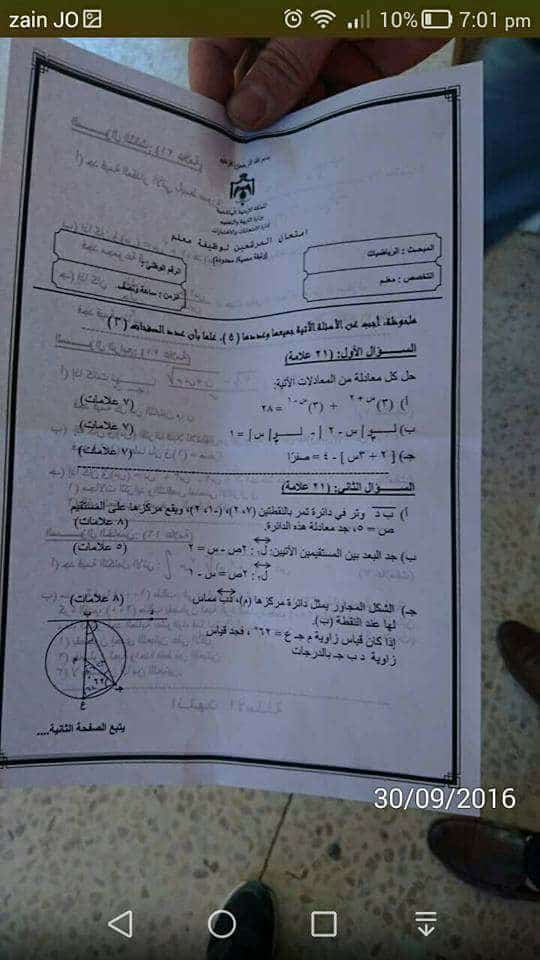 zain JO 10% 7:01 pm
بسم الله الرحمن الرحيم
المملكة الأردنية الهاشمية
وزارة التربية والتعليم
إدارة الامتحانات والاختبارات
امتحان المرفعين لوظيفة معلم
(وثيقة محمية/ محدودة)
المبحث : الرياضيات
الرقم الوطني :
التخصص : معلم
الزمن : ساعة ونصف
ملحوظة: أجب عن الأسئلة الآتية جميعها وعددها (٤)، علما بأن عدد الصفحات (٣)
الســـؤال الأول: (٢١ علامة)
حل كل معادلة من المعادلات الآتية:
أ) (٣)س+٢ + (٣)س-١ = ٢٨ (٧ علامات)
ب) لــو|س - ٢| - لــو|س| = ١ (٧ علامات)
جـ) [٢ + ٣س] - ٤ = صفرًا (٧ علامات)
الســـؤال الثاني: (٢١ علامة)
أ) ب د وتر في دائرة تمر بالنقطتين (٢،٧)، (-٢،١)، ويقع مركزها على المستقيم
ص = ٥، جد معادلة هذه الدائرة. (٨ علامات)
ب) جد البعد بين المستقيمين الآتيين: ل١: ٢ص - س = ٢ (٥ علامات)
ل٢: ٢ص = س - ٦
جـ) الشكل المجاور يمثل دائرة مركزها (م)، ب مماس (٨ علامات)
لها عند النقطة (ب).
إذا كان قياس زاوية م جـ ع = ٦٢°، فجد قياس
زاوية د ب جـ بالدرجات
٦٢
ع
يتبع الصفحة الثانية....
30/09/2016